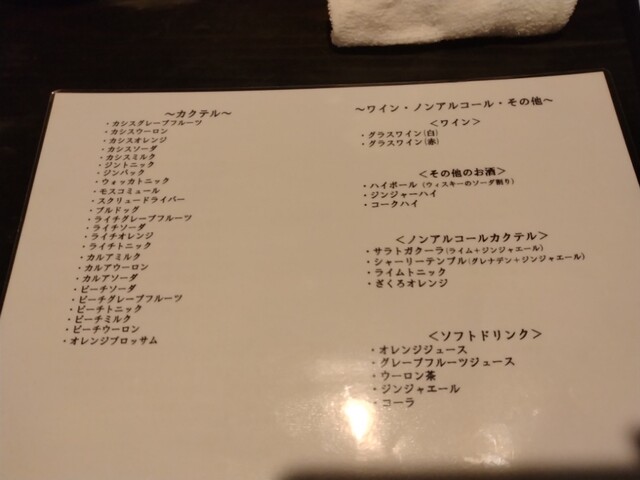 ～カクテル～
・カシスグレープフルーツ
・カシスウーロン
・カシスオレンジ
・カシスソーダ
・カシスミルク
・ジントニック
・ジンバック
・ウォッカトニック
・モスコミュール
・スクリュードライバー
・ブルドッグ
・ライチグレープフルーツ
・ライチソーダ
・ライチオレンジ
・ライチトニック
・カルアミルク
・カルアウーロン
・カルアソーダ
・ピーチソーダ
・ピーチグレープフルーツ
・ピーチトニック
・ピーチミルク
・ピーチウーロン
・オレンジブロッサム
～ワイン・ノンアルコール・その他～
＜ワイン＞
・グラスワイン(白)
・グラスワイン(赤)
＜その他のお酒＞
・ハイボール (ウィスキーのソーダ割り)
・ジンジャーハイ
・コークハイ
＜ノンアルコールカクテル＞
・サラトガクーラ(ライム＋ジンジャエール)
・シャーリーテンプル(グレナデン＋ジンジャエール)
・ライムトニック
・ざくろオレンジ
＜ソフトドリンク＞
・オレンジジュース
・グレープフルーツジュース
・ウーロン茶
・ジンジャエール
・コーラ